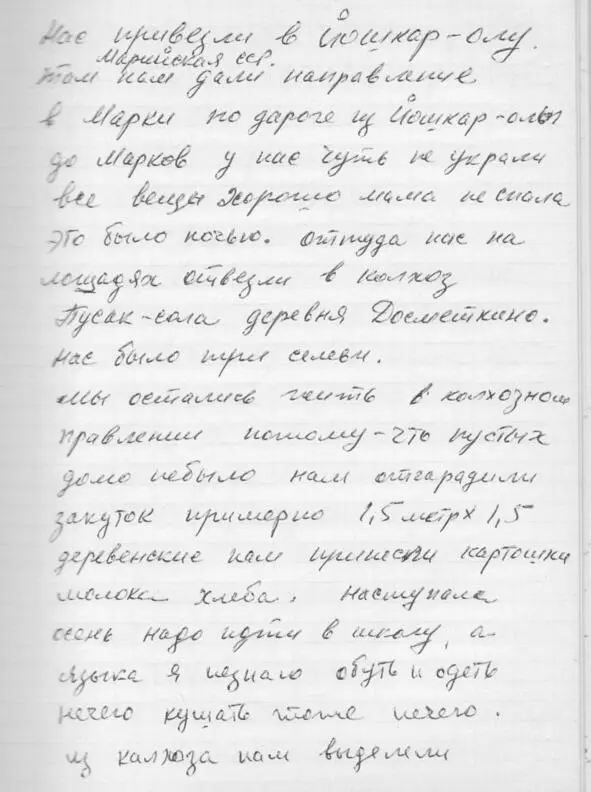 Нас привезли в Йошкар-олу.
Марийская ССР.
там нам дали направление
в Марки по дороге из Йошкар-олы
до Марков у нас чуть не украли
все вещи хорошо мама не спала
это было ночью. оттуда нас на
лошадях отвезли в колхоз
Пусак-сола деревня Досметкино.
нас было три семьи.
мы остались жить в колхозном
правлении потому-что пустых
домо небыло нам отгарадили
закуток примерно 1,5 метр х 1,5
деревенские нам принесли картошки
молока хлеба. наступала
осень надо идти в школу, а
языка я незнаю обуть и одеть
нечего кушать тоже нечего.
из калхоза нам выделели